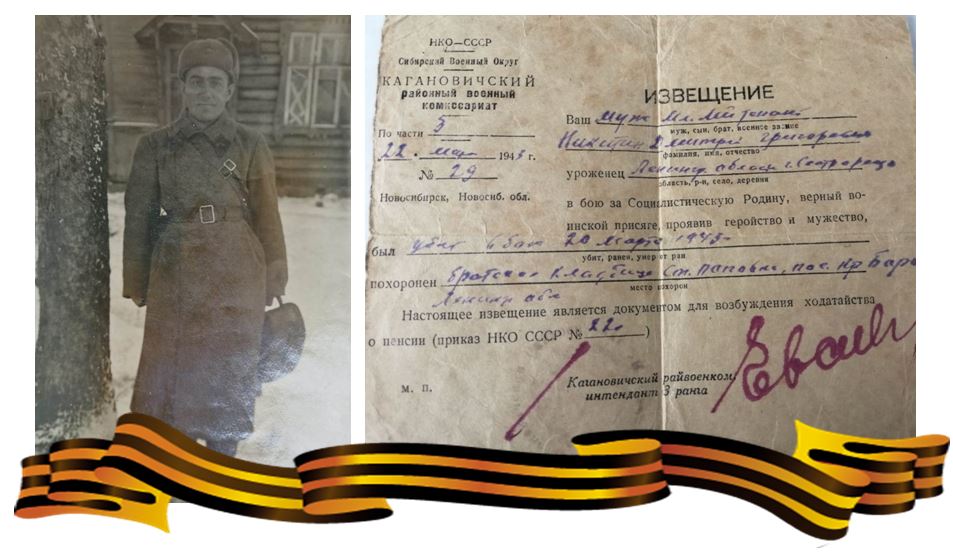 НКО—СССР
Сибирский Военный Округ
КАГАНОВИЧСКИЙ
районный военный
комиссариат
По части 3
22 · мая 1943 г.
№ 29
Новосибирск, Новосиб. обл.
ИЗВЕЩЕНИЕ
Ваш муж Мл. Лейтенант
муж, сын, брат, военное звание
Никитин Дмитрий Григорьевич
фамилия, имя, отчество
уроженец Ленингр. области г. Сестрорецк
область, р-н, село, деревня
в бою за Социалистическую Родину, верный во-
инской присяге, проявив геройство и мужество,
был убит в бою 20 марта 1943
убит, ранен, умер от ран
похоронен братское кладбище ст. Поповка, пос. Кр. Бор
место похорон
Ленингр обл
Настоящее извещение является документом для возбуждения ходатайства
о пенсии (приказ НКО СССР № 22)
м. п.
Кагановичский райвоенком
интендант 3 ранга